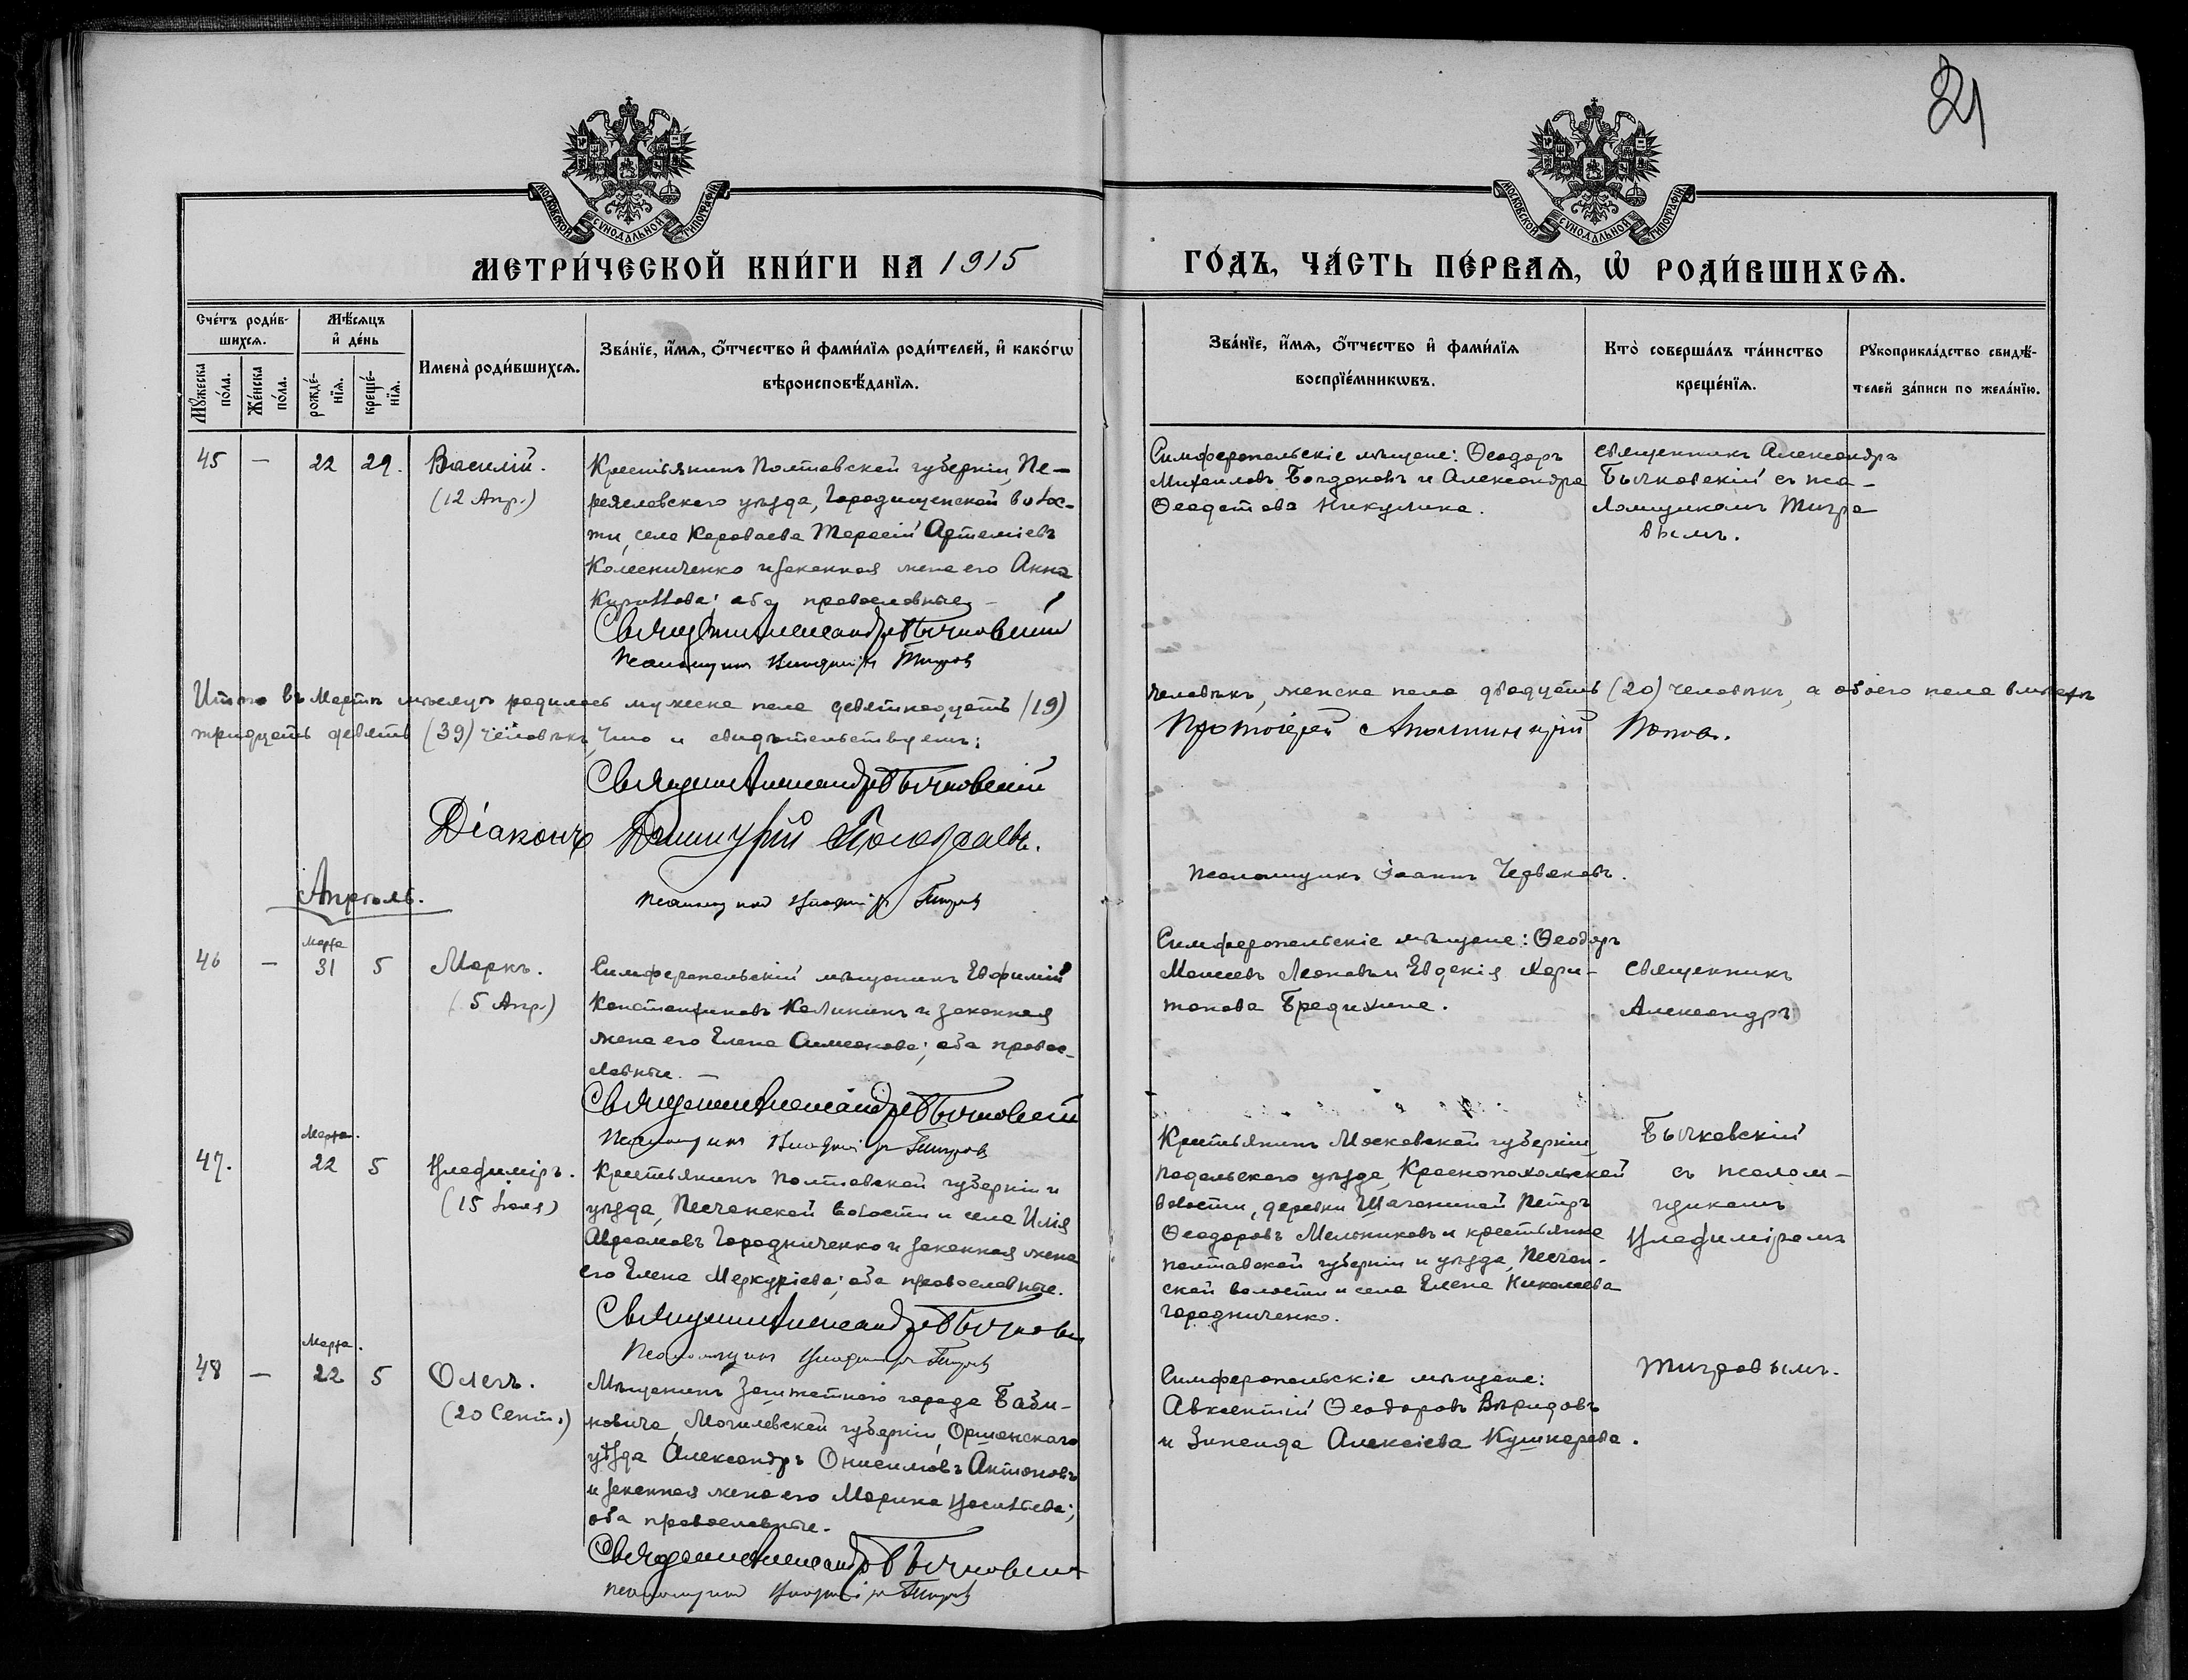 21
МОСКОВСКОЙ СѴНОДАЛЬНОЙ ТИПОГРАФІИ
МОСКОВСКОЙ СѴНОДАЛЬНОЙ ТИПОГРАФІИ
МЕТРИ́ЧЕСКОЙ КНИ́ГИ НА 1915
ГО́ДЪ, ЧА́СТЬ ПЕ́РВАѦ, Ѽ РОДИ́ВШИХСѦ.
Сче́тъ роди́в-
шихсѧ.
Мꙋ́жеска
по́ла.
Же́нска
по́ла.
Мѣ́сѧцъ
и҆ де́нь
рожде́-
нїѧ.
креще́-
нїѧ.
Имена̀ роди́вшихсѧ.
Зва́нїе, и҆́мѧ, ѻ҆́тчество и҆ фами́лїѧ роди́телей, и҆ како́гѡ
вѣроисповѣ́данїѧ.
Зва́нїе, и҆́мѧ, ѻ҆́тчество и҆ фами́лїѧ
воспрїе́мникѡвъ.
Кто̀ соверша́лъ та́инство
креще́нїѧ.
Рꙋкоприкла́дство свидѣ́-
телей за́писи по жела́нїю.
45 — 22 29.
Василій.
(12 Апр.)
Крестьянинъ Полтавской губерніи, Пе-
реяславскаго уѣзда, Городищенской волос-
ти, села Короваева Тарасій Артеміевъ
Колесниченко и законная жена его Анна
Кириллова; оба православные –
Священникъ Александръ Бычковскій
Псаломщикъ Владиміръ Тигровъ
Симферопольскіе мѣщане: Ѳеодоръ
Михаиловъ Богдановъ и Александра
Ѳеодотова Никулина.
Священникъ Александръ
Бычковскій съ пса-
ломщикомъ Тигро
вымъ.
Итого въ Мартѣ мѣсяцѣ родилось мужеска пола девятнадцать (19)
человѣкъ, женска пола двадцать (20) человѣкъ, а обоего пола вмѣстѣ
тридцать девять (39) человѣкъ, что и свидѣтельствуемъ:
Протоіерей Аполлинарій Поповъ.
Священникъ Александръ Бычковскій
Діаконъ Димитрій
Псаломщикъ Іоаннъ Червяковъ.
Псаломщикъ Владиміръ Тигровъ
Апрѣль.
46 — Марта 31 5
Маркъ.
(5 Апр.)
Симферопольскій мѣщанинъ Евфимій
Константиновъ Калининъ и законная
жена его Елена Симеонова; оба правос-
лавные. —
Священникъ Александръ Бычковскій
Псаломщикъ Владиміръ Тигровъ
Симферопольскіе мѣщане: Ѳеодоръ
Моисеевъ Леоновъ и Евдокія Хари-
тонова Бредихина.
Священникъ
Александръ
47. Марта. 22 5
Владиміръ.
(15 Іюля)
Крестьянинъ Полтавской губерніи и
уѣзда, Песчанской волости и села Илія
Авраамовъ Городниченко и законная жена
его Елена Меркуріева; оба православные.
Священникъ Александръ Бычковскій
Псаломщикъ Владиміръ Тигровъ
Крестьянинъ Московской губерніи
Подольскаго уѣзда, Краснопахольской
волости, деревни Шаганиной Петръ
Ѳеодоровъ Мельниковъ и крестьянка
Полтавской губерніи и уѣзда, Песчан-
ской волости и села Елена Николаева
Городниченко.
Бычковскій
съ псалом-
щикомъ
Владиміромъ
48 — Марта. 22 5
Олегъ.
(20 Сент.)
Мѣщанинъ заштатнаго города Баби-
новича, Могилевской губерніи, Оршанскаго
уѣзда Александръ Онисимовъ Антоновъ
и законная жена его Марина Васильева;
оба православные.
Священникъ Александръ Бычковскій
Псаломщикъ Владиміръ Тигровъ
Симферопольскіе мѣщане:
Авксентій Ѳеодоровъ Виридовъ
и Зинаида Алексіева Кушнарева.
Тигровымъ.